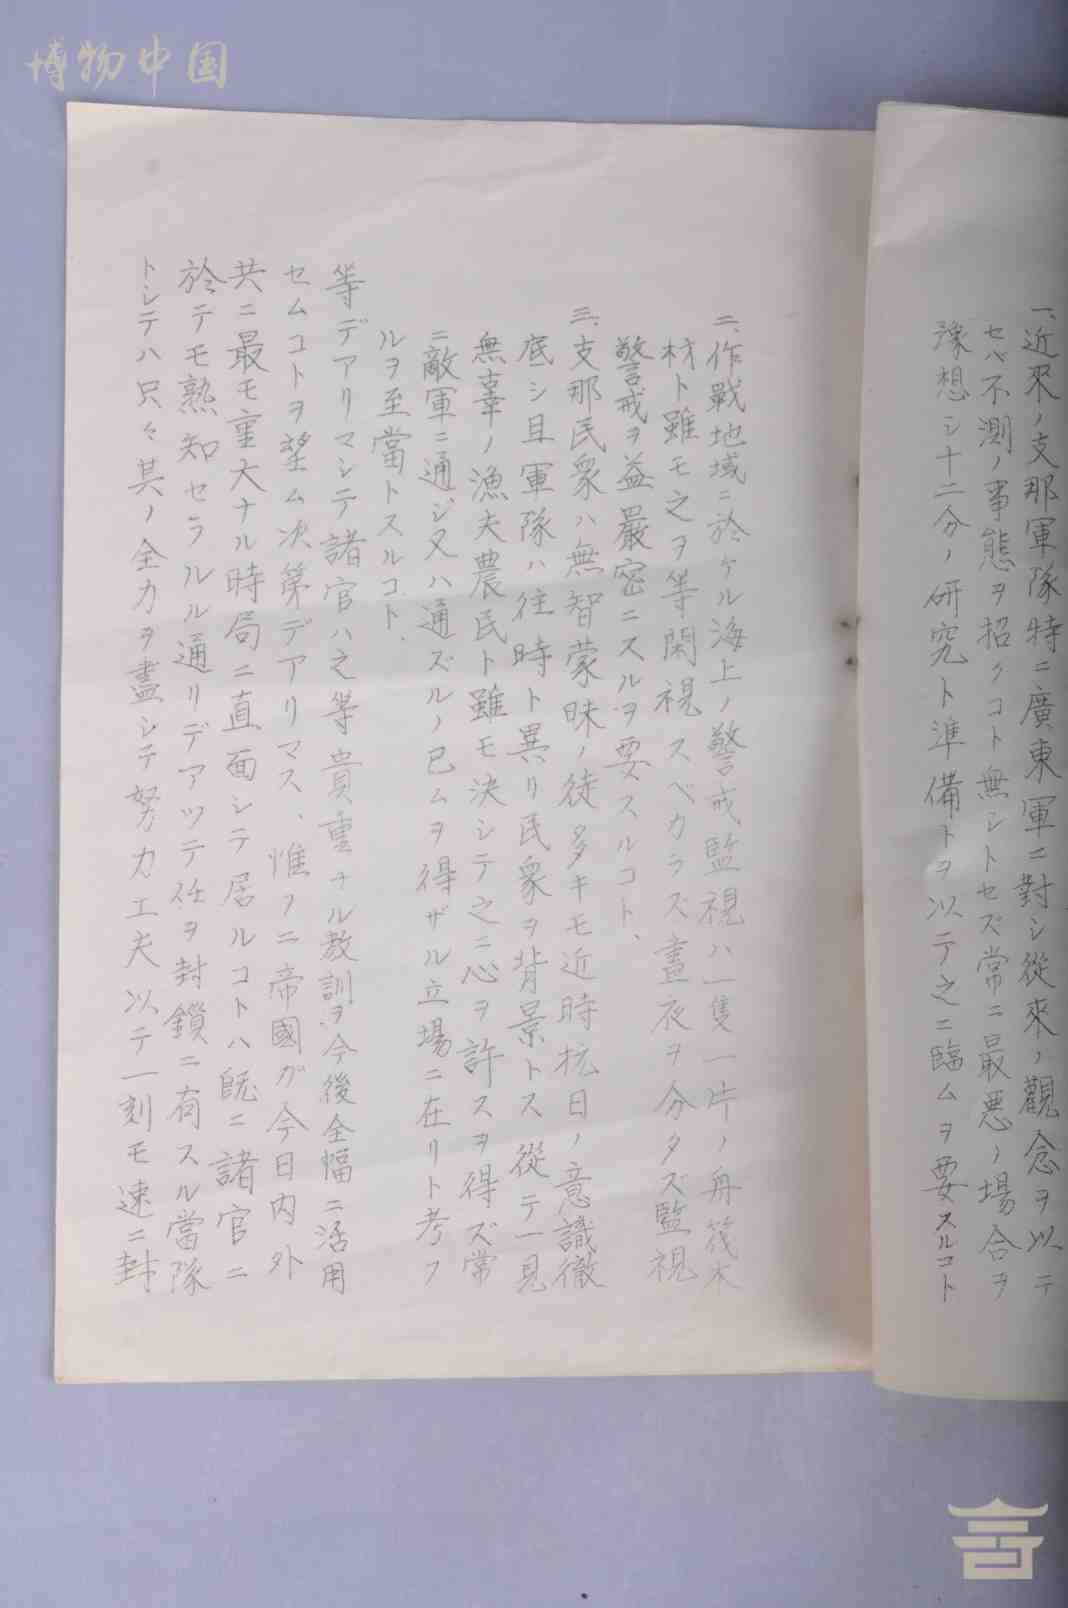 博物中国
一、近来ノ支那軍隊特ニ廣東軍ニ對シ從來ノ觀念ヲ以テ
セバ不測ノ事態ヲ招クコト無シトセズ常ニ最悪ノ場合ヲ
豫想シ十二分ノ研究ト準備トヲ以テ之ニ臨ムヲ要スルコト
二、作戰地域ニ於ケル海上ノ警戒監視ハ一隻一片ノ舟筏木
材ト雖モ之ヲ等閑視スベカラズ晝夜ヲ分タズ監視
警戒ヲ益嚴密ニスルヲ要スルコト、
三、支那民衆ハ無智蒙昧ノ徒多キモ近時抗日ノ意識徹
底シ且軍隊ハ往時ト異リ民衆ヲ背景トス從テ一見
無辜ノ漁夫農民ト雖モ決シテ之ニ心ヲ許スヲ得ズ常
ニ敵軍ニ通ジ又ハ通ズルノ已ムヲ得ザル立場ニ在リト考フ
ルヲ至當トスルコト、
等デアリマシテ諸官ハ之等貴重ナル教訓ヲ今後全幅ニ活用
セムコトヲ望ム次第デアリマス、惟フニ帝國ガ今日内外
共ニ最モ重大ナル時局ニ直面シテ居ルコトハ既ニ諸官ニ
於テモ熟知セラルル通リデアツテ任ヲ封鎖ニ有スル當隊
トシテハ只々其ノ全力ヲ盡シテ努力工夫以テ一刻モ速ニ封